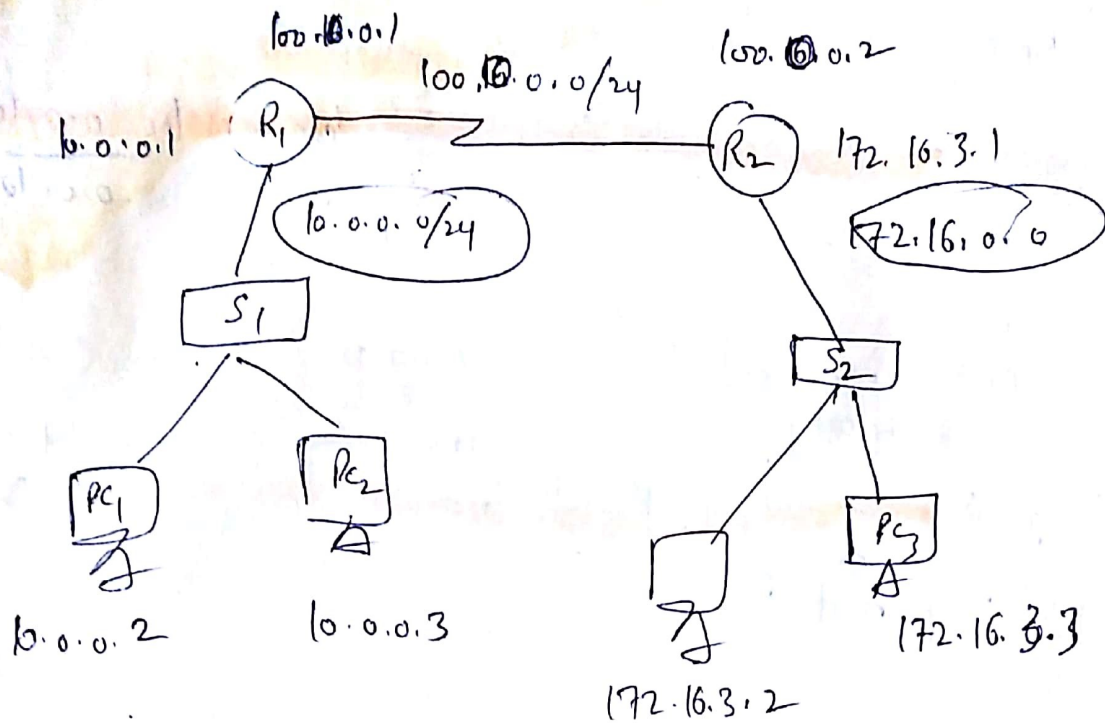 100.0.0.1
100.0.0.0/24
100.0.0.2
10.0.0.1
R1
R2
172.16.3.1
10.0.0.0/24
172.16.0.0
S1
S2
PC1
PC2
PC3
10.0.0.2
10.0.0.3
172.16.3.3
172.16.3.2